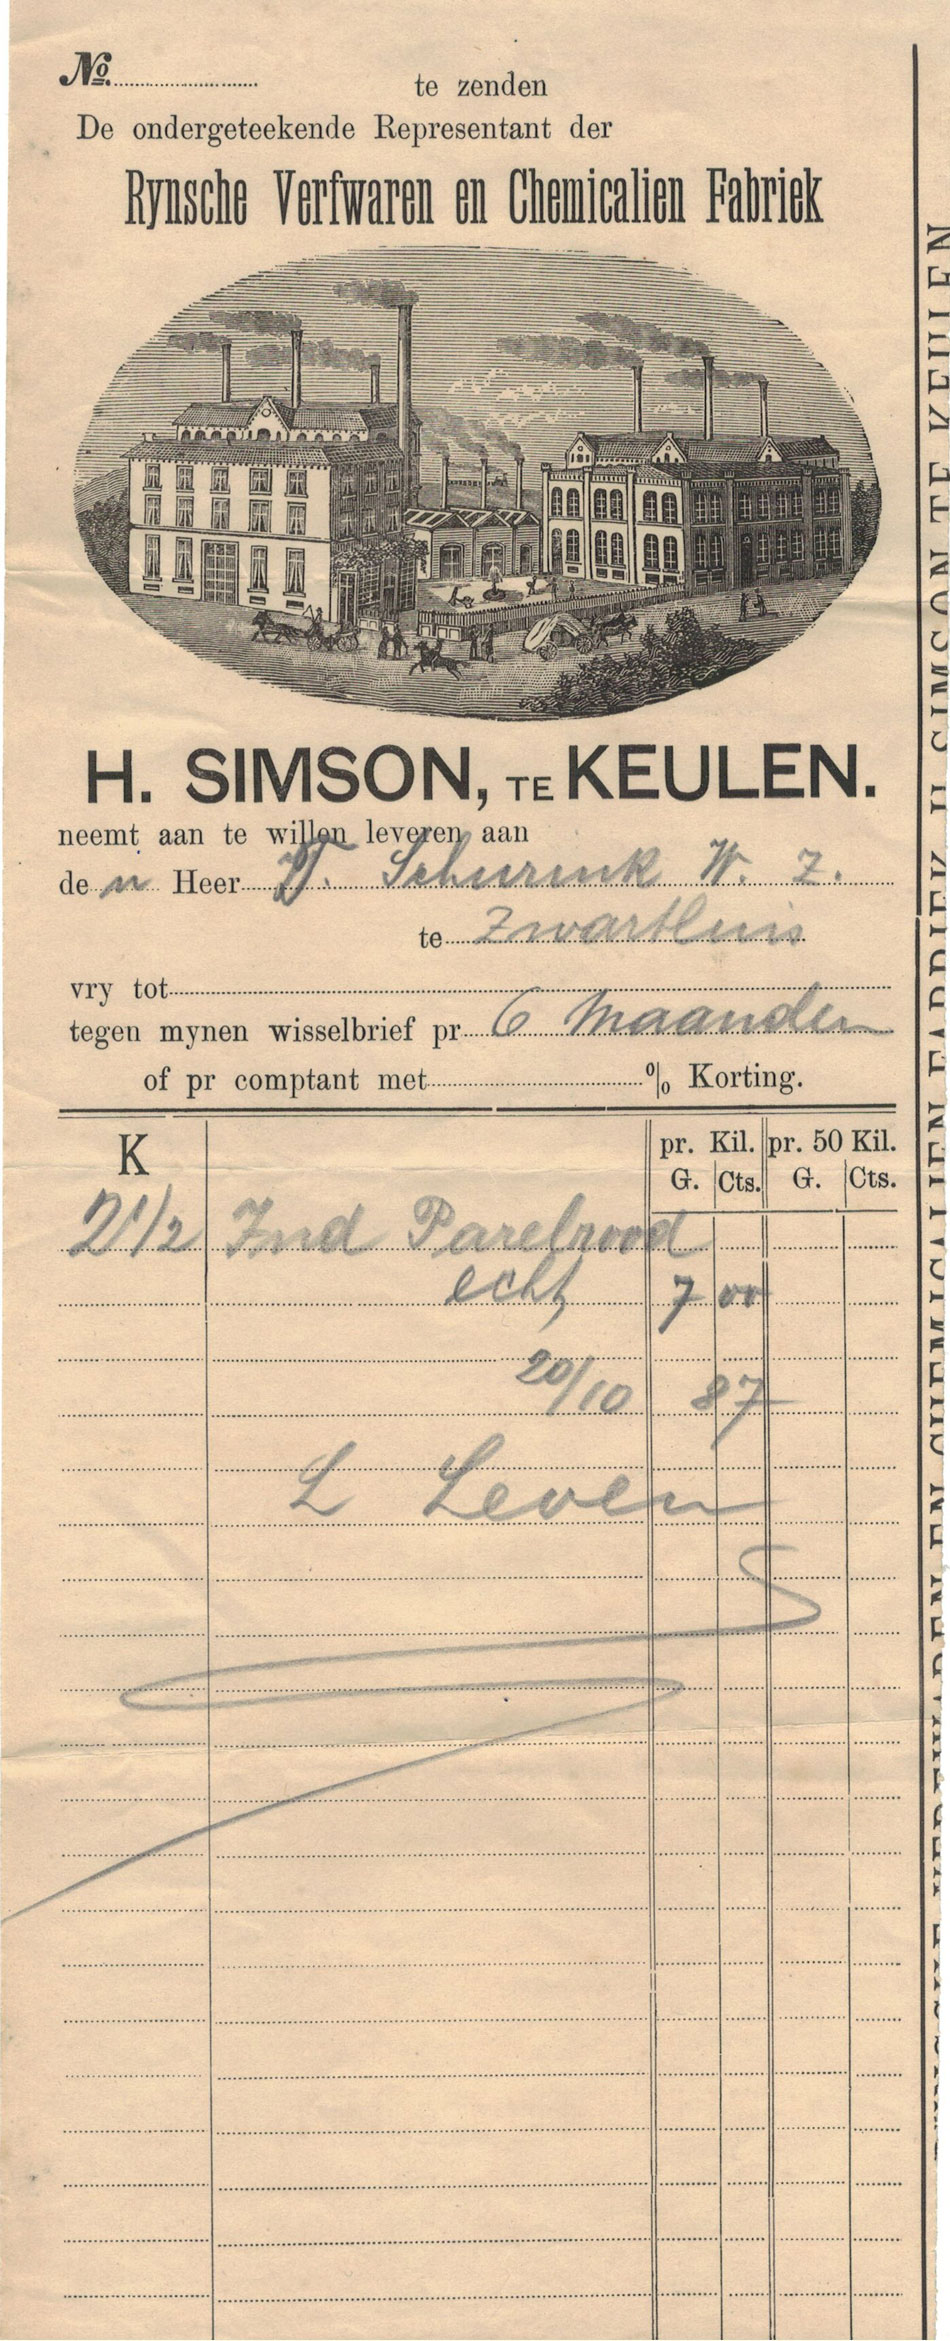 No.
te zenden
De ondergeteekende Representant der
Rynsche Verfwaren en Chemicalien Fabriek
H. SIMSON, TE KEULEN.
neemt aan te willen leveren aan
de n Heer D. Schurink W. Z.
te Zwartsluis
vry tot
tegen mynen wisselbrief pr 6 Maanden
of pr comptant met % Korting.
K pr. Kil. pr. 50 Kil.
G. Cts. G. Cts.
2 1/2 Ind Parelrood
echt 7 00
20/10 87
L Leven
H. SIMSON TE KEULEN